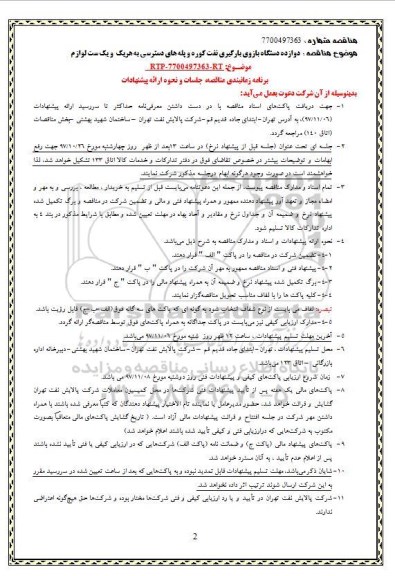 مناقصه شماره : 7700497363
موضوع مناقصه : دوازده دستگاه بازوی بارگیری نفت کوره و پله های دسترسی به هریک و یک ست لوازم
موضوع: RTP-7700497363-RT
برنامه زمانبندی مناقصه، جلسات و نحوه ارائه پیشنهادات
بدینوسیله از آن شرکت دعوت بعمل می آید:
۱- جهت دریافت پاکت‌های اسناد مناقصه با در دست داشتن معرفی‌نامه حداکثر تا سررسید ارائه پیشنهادات
(۹۷/۱۱/۰۶)، به آدرس تهران-ابتدای جاده قدیم قم-شرکت پالایش نفت تهران – ساختمان شهید بهشتی -بخش مناقصات
(اتاق ۱۴۰) مراجعه گردد.
۲- جلسه ای تحت عنوان (جلسه قبل از پیشنهاد نرخ) در ساعت ۱۳بعد از ظهر روز چهارشنبه مورخ ۹۷/۱۰/۲۶ جهت رفع
ابهامات و توضیحات بیشتر در خصوص تقاضای فوق در دفتر تدارکات و خدمات کالا اتاق ۱۲۳ تشکیل خواهد شد، لذا
خواهشمند است در صورت وجود هرگونه ابهام درجلسه مذکور شرکت نمایند.
۳- تمام اسناد و مدارک مناقصه پیوست، از جمله این دعوتنامه می‌بایست قبل از تسلیم به خریدار، مطالعه ، بررسی و به مهر و
امضاء مجاز و تعهد آور پیشنهاد دهنده ممهور و همراه پیشنهاد فنی و مالی و تضمین شرکت در مناقصه و برگ تکمیل شده
پیشنهاد نرخ و ضمیمه آن و جداول نرخ و مقادیر و آحاد بهاء در مهلت تعیین شده و مطابق با شرایط مذکور در بند ۴ به
اداره تدارکات کالا تسلیم شود.
۴- نحوه ارائه پیشنهادات و اسناد و مدارک مناقصه به شرح ذیل می‌باشد.
۱-۵- تضمین شرکت در مناقصه را در پاکت " الف " قرار دهند.
۲-۵- پیشنهاد فنی و اسناد مناقصه ممهور به مهر آن شرکت را در پاکت " ب " قرار دهند.
۴-۵- برگ تکمیل شده پیشنهاد نرخ و ضمیمه آن به همراه پیشنهاد مالی را در پاکت " ج " قرار دهند.
۵-۵- کلیه پاکت ها را با لفاف مناسب تحویل مناقصه‌گزار نمایند.
تبصره: لفاف می بایست از نوع شفاف انتخاب شود به گونه ای که پاکت های سه گانه فوق(الف-ب-ج) قابل رؤیت باشد.
۵-۵-مدارک ارزیابی کیفی نیز می‌بایست در پاکت جداگانه به همراه پاکت‌های فوق توسط مناقصه‌گر ارائه گردد.
۵- آخرین مهلت تسلیم پیشنهادات ، ساعت ۱۲ ظهر روز شنبه مورخ ۹۷/۱۱/۰۶ می‌باشد.
۶- محل تسلیم پیشنهادات ، تهران-ابتدای جاده قدیم قم – شرکت پالایش نفت تهران -ساختمان شهید بهشتی -دبیرخانه اداره
بازرگانی -اتاق ۱۲۳ می‌باشد.
۷- زمان شروع ارزیابی پاکت‌های کیفی و پیشنهادات فنی روز دوشنبه مورخ ۹۷/۱۱/۰۸ می باشد.
۸- پاکت‌های مالی یک هفته پس از تأیید پیشنهادات فنی شرکت‌ها در محل کمیسیون معاملات شرکت پالایش نفت تهران
گشایش و قرائت خواهد شد. حضور مدیرعامل یا نماینده تام الاختیار پیشنهاد دهندگان که کتباً معرفی شده باشند با همراه
داشتن مهر شرکت در جلسه افتتاح و قرائت پیشنهادات مالی آزاد است. ( تاریخ گشایش پاکت‌های مالی متعاقباً بصورت
مکتوب به شرکت‌هایی که درارزیابی فنی و کیفی تأیید شده باشند اعلام خواهد شد)
۹- پاکت‌های پیشنهاد مالی (پاکت ج) و ضمانت نامه (پاکت الف) شرکت‌هایی که در ارزیابی کیفی یا فنی تأیید نشده باشند
پس از اعلام عدم تأیید ، به آنان مسترد خواهد شد.
۱۰-شایان ذکر می‌باشد، مهلت تسلیم پیشنهادات قابل تمدید نبوده و به پاکت‌هایی که بعد از ساعت تعیین شده در سررسید مقرر
به این شرکت ارسال شوند ترتیب اثر داده نخواهد شد.
۱۱-شرکت پالایش نفت تهران در تأیید و یا رد ارزیابی کیفی و فنی شرکت‌ها مختار بوده و شرکت‌ها حق هیچ‌گونه اعتراضی
ندارند.
2